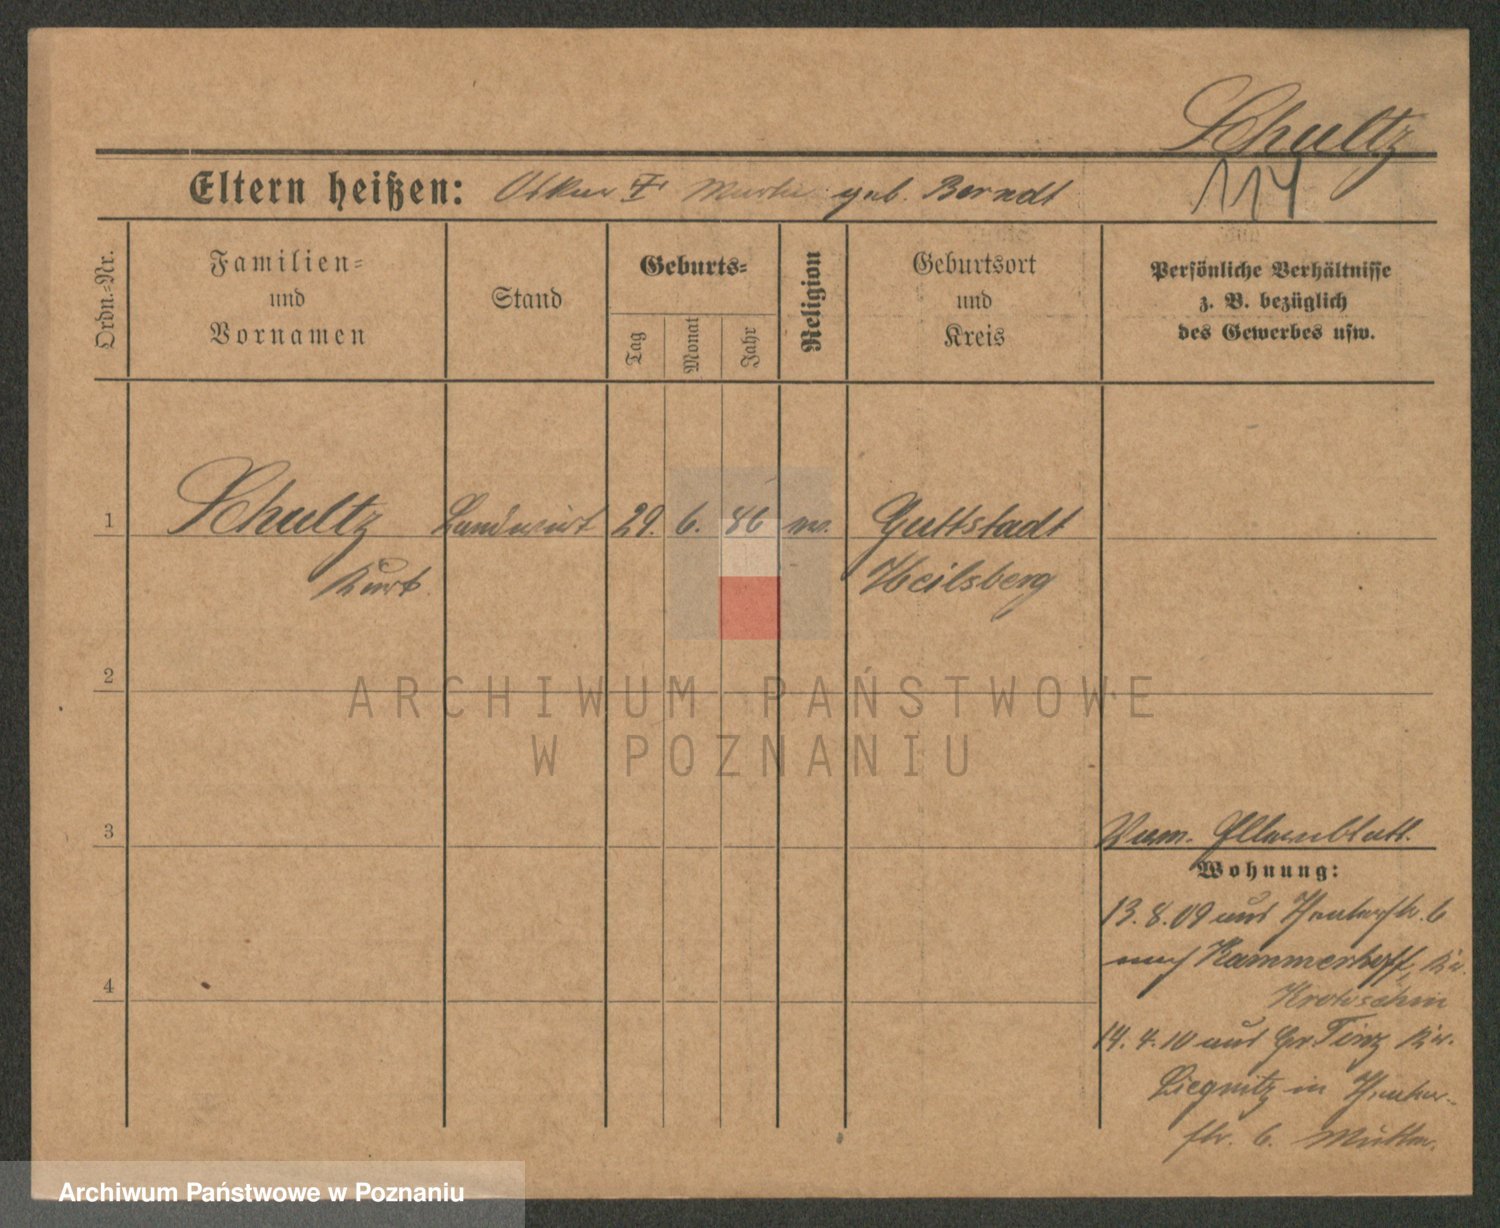 Schultz
114
Eltern heißen: Oskar † Martha geb. Berndt
Ordn.-Nr.
Familien-
und
Vornamen
Stand
Geburts-
Tag
Monat
Jahr
Religion
Geburtsort
und
Kreis
Persönliche Verhältnisse
z. B. bezüglich
des Gewerbes usw.
1 Schultz Landwirt 29. 6. 86 ev. Guttstadt
Kurt Heilsberg
2
ARCHIWUM PAŃSTWOWE
W POZNANIU
3
Elternblatt.
Wohnung:
13.8.09 aus 6
nach Kammerhoff, Kr.
4
Krotoschin
14.4.10 aus Gr. Tinz Kr.
Liegnitz in
str. 6. Mutter.
Archiwum Państwowe w Poznaniu